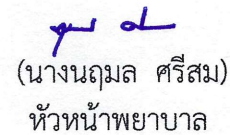 (นางนฤมล ศรีสม)
หัวหน้าพยาบาล